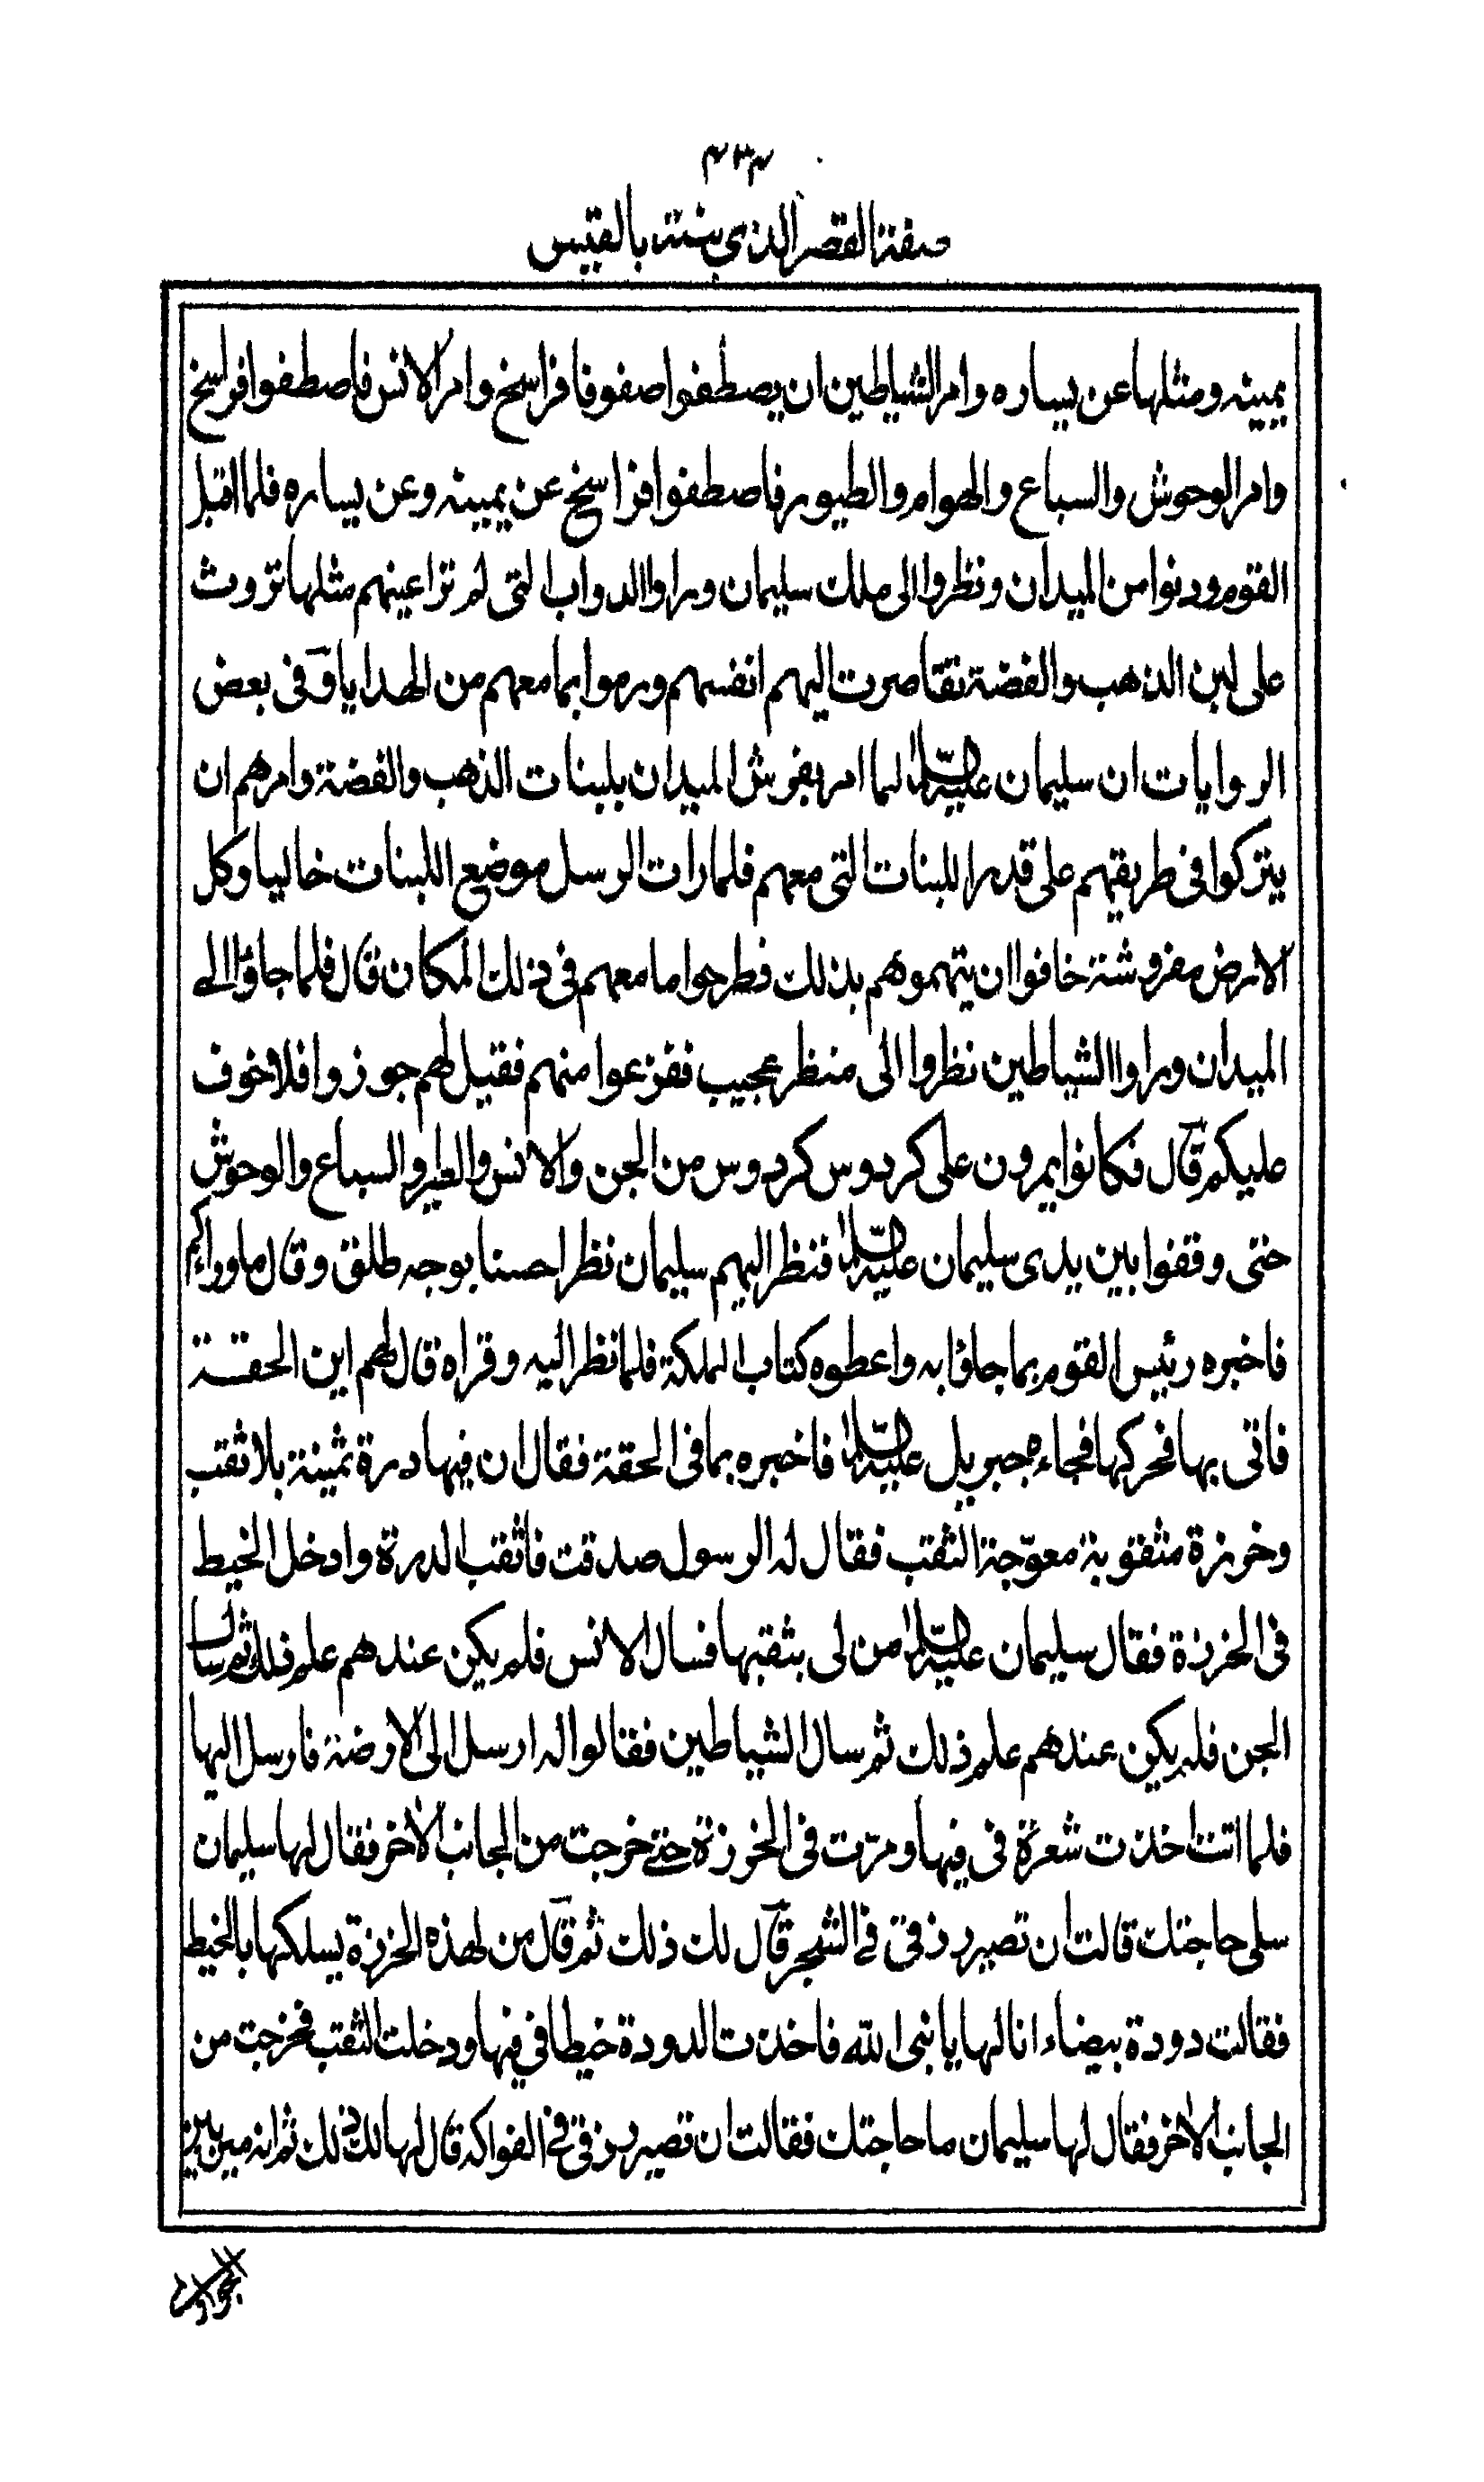 ٤٣٤
صفة القصر الذي بنته بالقيس
يمينه ومثلها عن يساره وامر الشياطين ان يصطفوا صفوفا فراسخ وامر الانس فاصطفوا فراسخ
وامر الوحوش والسباع والهوام والطيور فاصطفوا فراسخ عن يمينه وعن يساره فلما اقبل
القوم ودنوا من الميدان ونظروا الى ملك سليمان وراوا الدواب التى لم تر اعينهم مثلها تروث
على لبن الذهب والفضة تقاصرت اليهم انفسهم ورموا بما معهم من الهدايا وفى بعض
الروايات ان سليمان عليه السلام لما امر بفرش الميدان بلبنات الذهب والفضة وامرهم ان
يتركوا فى طريقهم على قدر اللبنات التى معهم فلما رات الرسل موضع اللبنات خاليا وكل
الارض مفروشة خافوا ان يتهموهم بذلك فطرحوا ما معهم فى ذلك المكان قال فلما جاؤا الے
الميدان وراوا الشياطين نظروا الى منظر عجيب ففزعوا منهم فقيل لهم جوزوا فلا خوف
عليكم قال فكانوا يمرون على كردوس كردوس من الجن والانس والطير والسباع والوحوش
حتى وقفوا بين يدى سليمان عليه السلام فنظر اليهم سليمان نظرا حسنا بوجه طلق وقال ما وراءكم
فاخبره رئيس القوم بما جاؤا به واعطوه كتاب الملكة فلما نظر اليه وقراه قال لهم اين الحقة
فاتى بها فحركها فجاءه جبريل عليه السلام فاخبره بما فى الحقة فقال ان فيها درة ثمينة بلا ثقب
وخرزة مثقوبة معوّجة الثقب فقال له الرسول صدقت فاثقب الدرة وادخل الخيط
فى الخرزة فقال سليمان عليه السلام من لى بثقبها فسال الانس فلم يكن عندهم علم ذلك ثم سال
الجن فلم يكن عندهم علم ذلك ثم سال الشياطين فقالوا له ارسل الى الارضة فارسل اليها
فلما اتت اخذت شعرة فى فيها ومرّت فى الخرزة حتے خرجت من الجانب الاخر فقال لها سليمان
سلى حاجتك قالت ان تصير رزقى فے الشجر قال لك ذلك ثم قال من لهذه الخرزة يسلكها بالخيط
فقالت دودة بيضاء انا لها يا نبى الله فاخذت الدودة خيطا في فيها ودخلت الثقب فخرجت من
الجانب الاخر فقال لها سليمان ما حاجتك فقالت ان تصير رزقى فے الفواكه قال لها لك ذلك ثم انه ميز بين